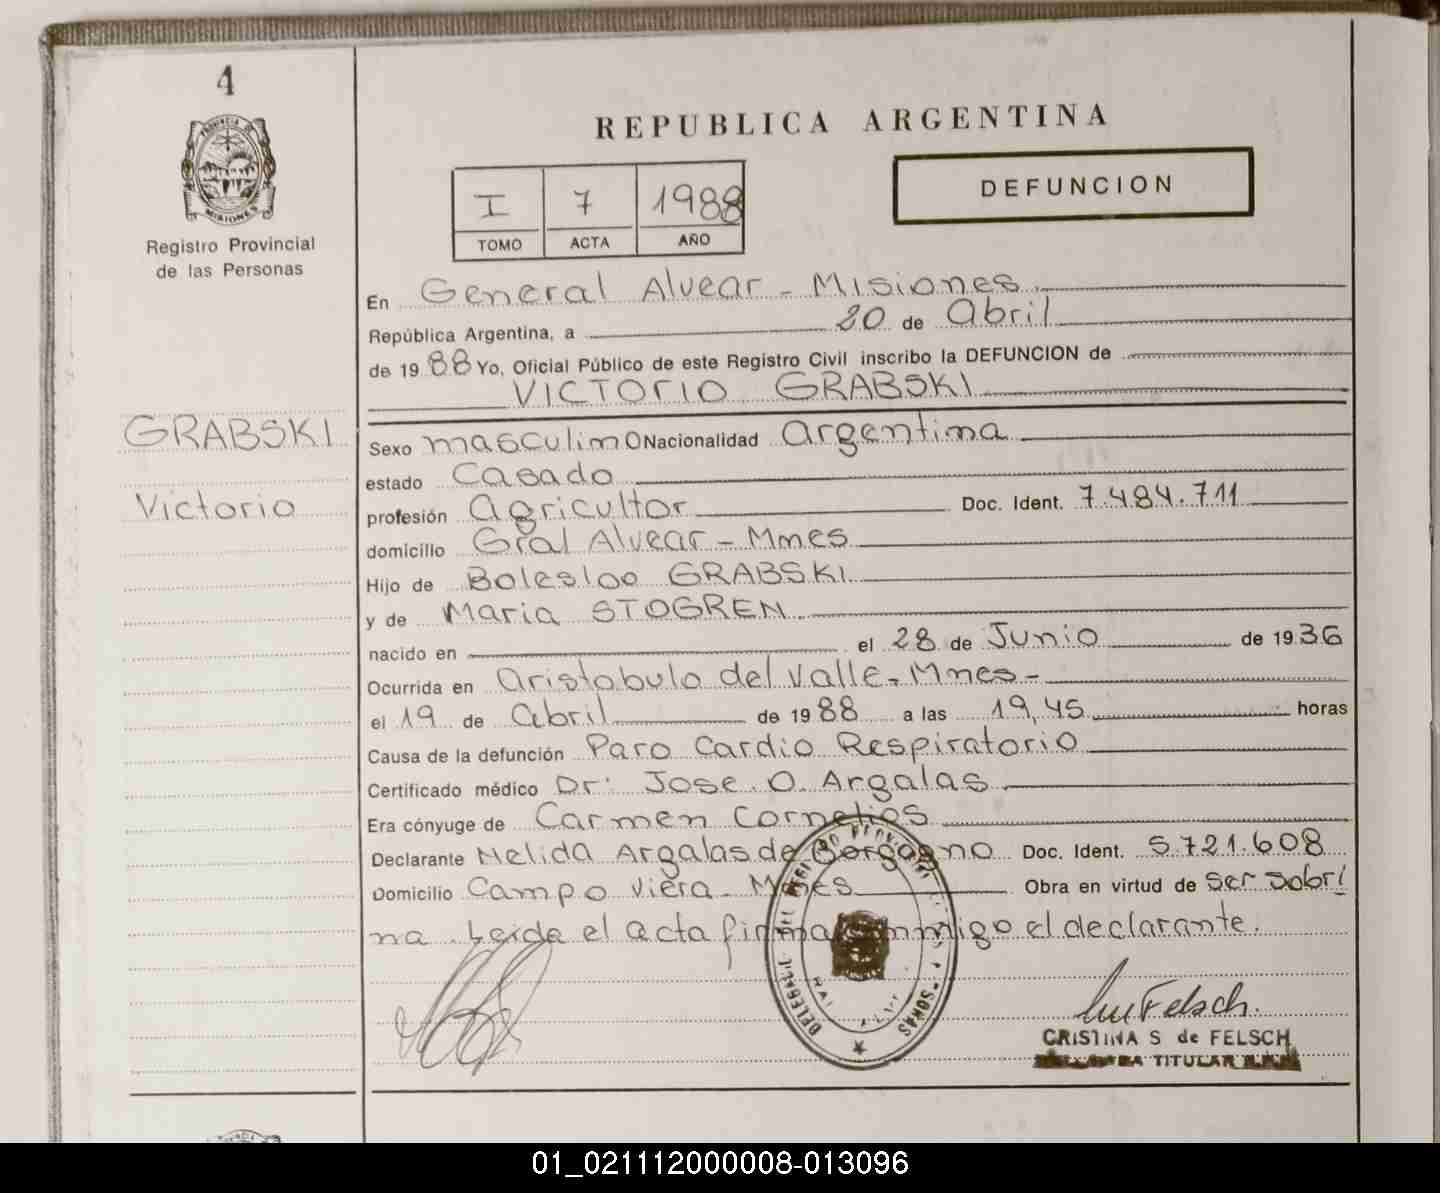 4
PROVINCIA DE
MISIONES
Registro Provincial
de las Personas
GRABSKI
Victorio
REPUBLICA ARGENTINA
I 7 1988
TOMO ACTA AÑO
DEFUNCION
En General Alvear - Misiones
República Argentina, a 20 de Abril
de 1988 Yo, Oficial Público de este Registro Civil inscribo la DEFUNCION de
VICTORIO GRABSKI
Sexo masculino Nacionalidad argentina
estado Casado
profesión Agricultor Doc. Ident. 7.484.711
domicilio Gral Alvear - Mnes
Hijo de Bolesloo GRABSKI
y de Maria STOGREN
nacido en el 28 de Junio de 1936
Ocurrida en aristobulo del Valle - Mnes -
el 19 de abril de 1988 a las 19,45 horas
Causa de la defunción Paro Cardio Respiratorio
Certificado médico Dr: Jose O. Argalas
Era cónyuge de Carmen Cornelios
Declarante Nelida Argalas de Gorgogno Doc. Ident. 5.721.608
Domicilio Campo Viera - Mnes Obra en virtud de ser sobri
na . Leida el acta firma conmigo el declarante.
Felsch.
CRISTINA S de FELSCH
TITULAR
01_021112000008-013096